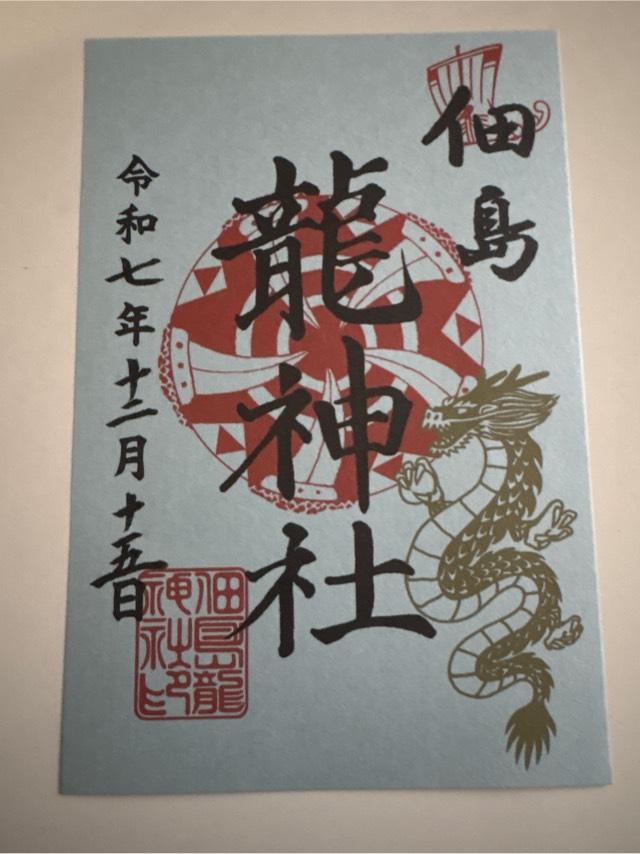 佃島
龍神社
令和七年十二月十五日
佃島龍
神社印